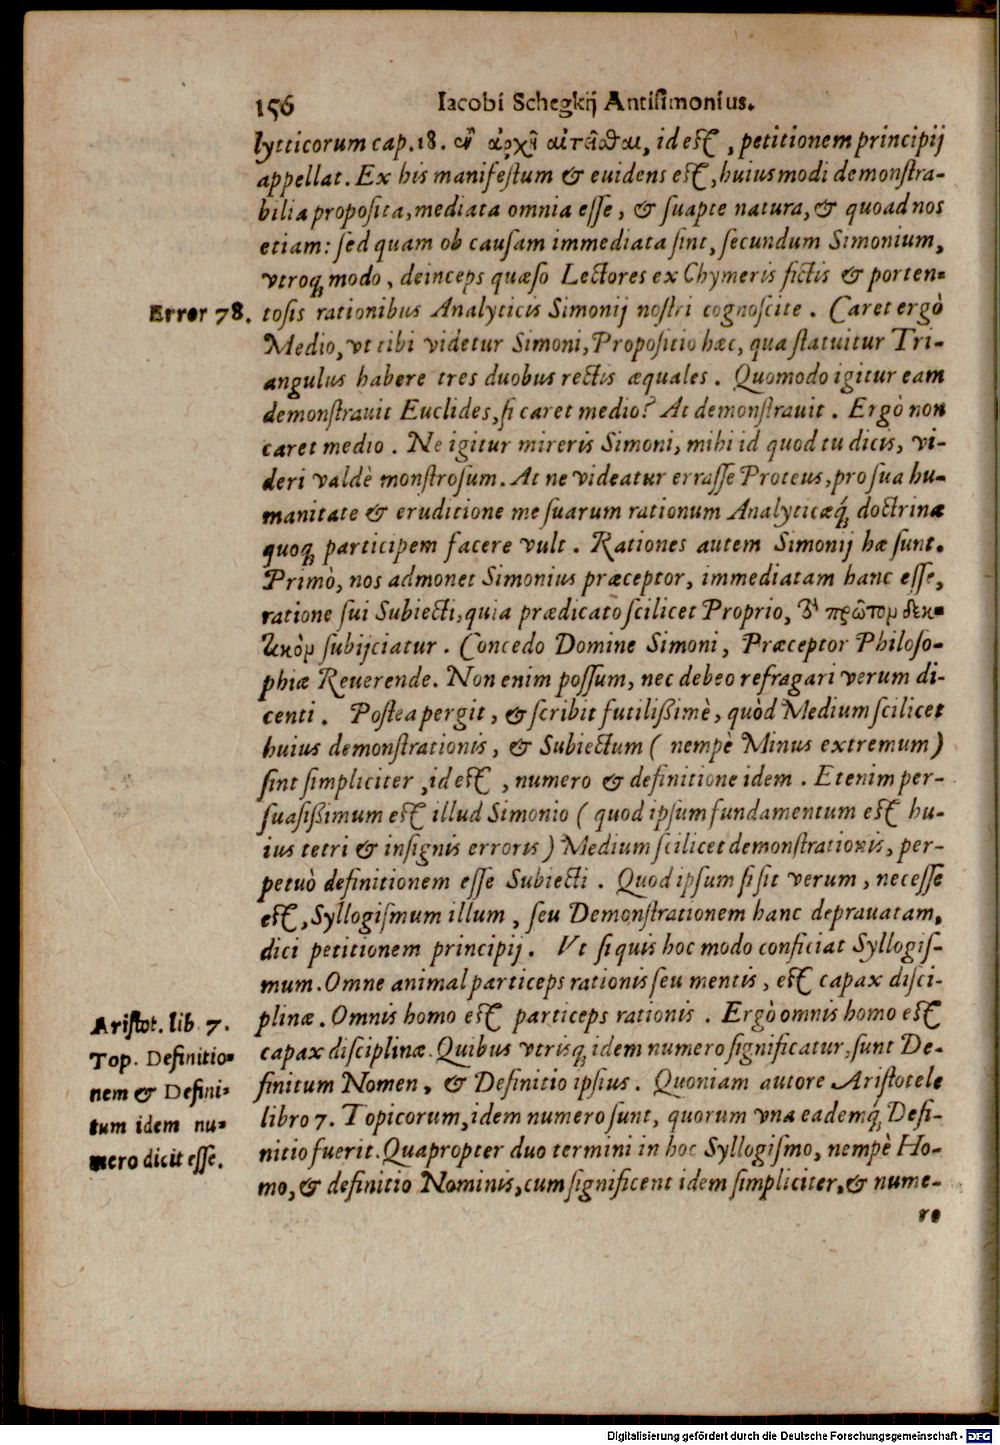 156 Iacobi Schegkij Antisimonius.
lytticorum cap. 18. ἐν ἀρχῇ αἰτεῖσθαι, id est, petitionem principij
appellat. Ex his manifestum & euidens est, huiusmodi demonstra-
bilia proposita, mediata omnia esse, & suapte natura, & quoad nos
etiam: sed quam ob causam immediata sint, secundum Simonium,
vtroq; modo, deinceps quæso Lectores ex Chymeris fictis & porten-
Error 78. tosis rationibus Analyticis Simonij nostri cognoscite. Caret ergò
Medio, vt tibi videtur Simoni, Propositio hæc, qua statuitur Tri-
angulus habere tres duobus rectis æquales. Quomodo igitur eam
demonstrauit Euclides, si caret medio? At demonstrauit. Ergò non
caret medio. Ne igitur mireris Simoni, mihi id quod tu dicis, vi-
deri valdè monstrosum. At ne videatur errasse Proteus, pro sua hu-
manitate & eruditione me suarum rationum Analyticæq́; doctrinæ
quoq; participem facere vult. Rationes autem Simonij hæ sunt.
Primò, nos admonet Simonius præceptor, immediatam hanc esse,
ratione sui Subiecti, quia prædicato scilicet Proprio, τὸ πρῶτον δεκ-
τικὸν subijciatur. Concedo Domine Simoni, Præceptor Philoso-
phiæ Reuerende. Non enim possum, nec debeo refragari verum di-
centi. Postea pergit, & scribit futilißimè, quòd Medium scilicet
huius demonstrationis, & Subiectum (nempè Minus extremum)
sint simpliciter, id est, numero & definitione idem. Etenim per-
suasißimum est illud Simonio (quod ipsum fundamentum est hu-
ius tetri & insignis erroris) Medium scilicet demonstrationis, per-
petuò definitionem esse Subiecti. Quod ipsum si sit verum, necesse
est, Syllogismum illum, seu Demonstrationem hanc deprauatam,
dici petitionem principij. Vt si quis hoc modo conficiat Syllogis-
mum. Omne animal particeps rationis seu mentis, est capax disci-
plinæ. Omnis homo est particeps rationis. Ergò omnis homo est
capax disciplinæ. Quibus vtrisq; idem numero significatur, sunt De-
finitum Nomen, & Definitio ipsius. Quoniam autore Aristotele
libro 7. Topicorum, idem numero sunt, quorum vna eademq́; Defi-
nitio fuerit. Quapropter duo termini in hoc Syllogismo, nempè Ho-
mo, & definitio Nominis, cum significent idem simpliciter, & nume-
ro
Aristot. lib 7.
Top. Definitio-
nem & Defini-
tum idem nu-
mero dicit esse.
Digitalisierung gefördert durch die Deutsche Forschungsgemeinschaft - DFG